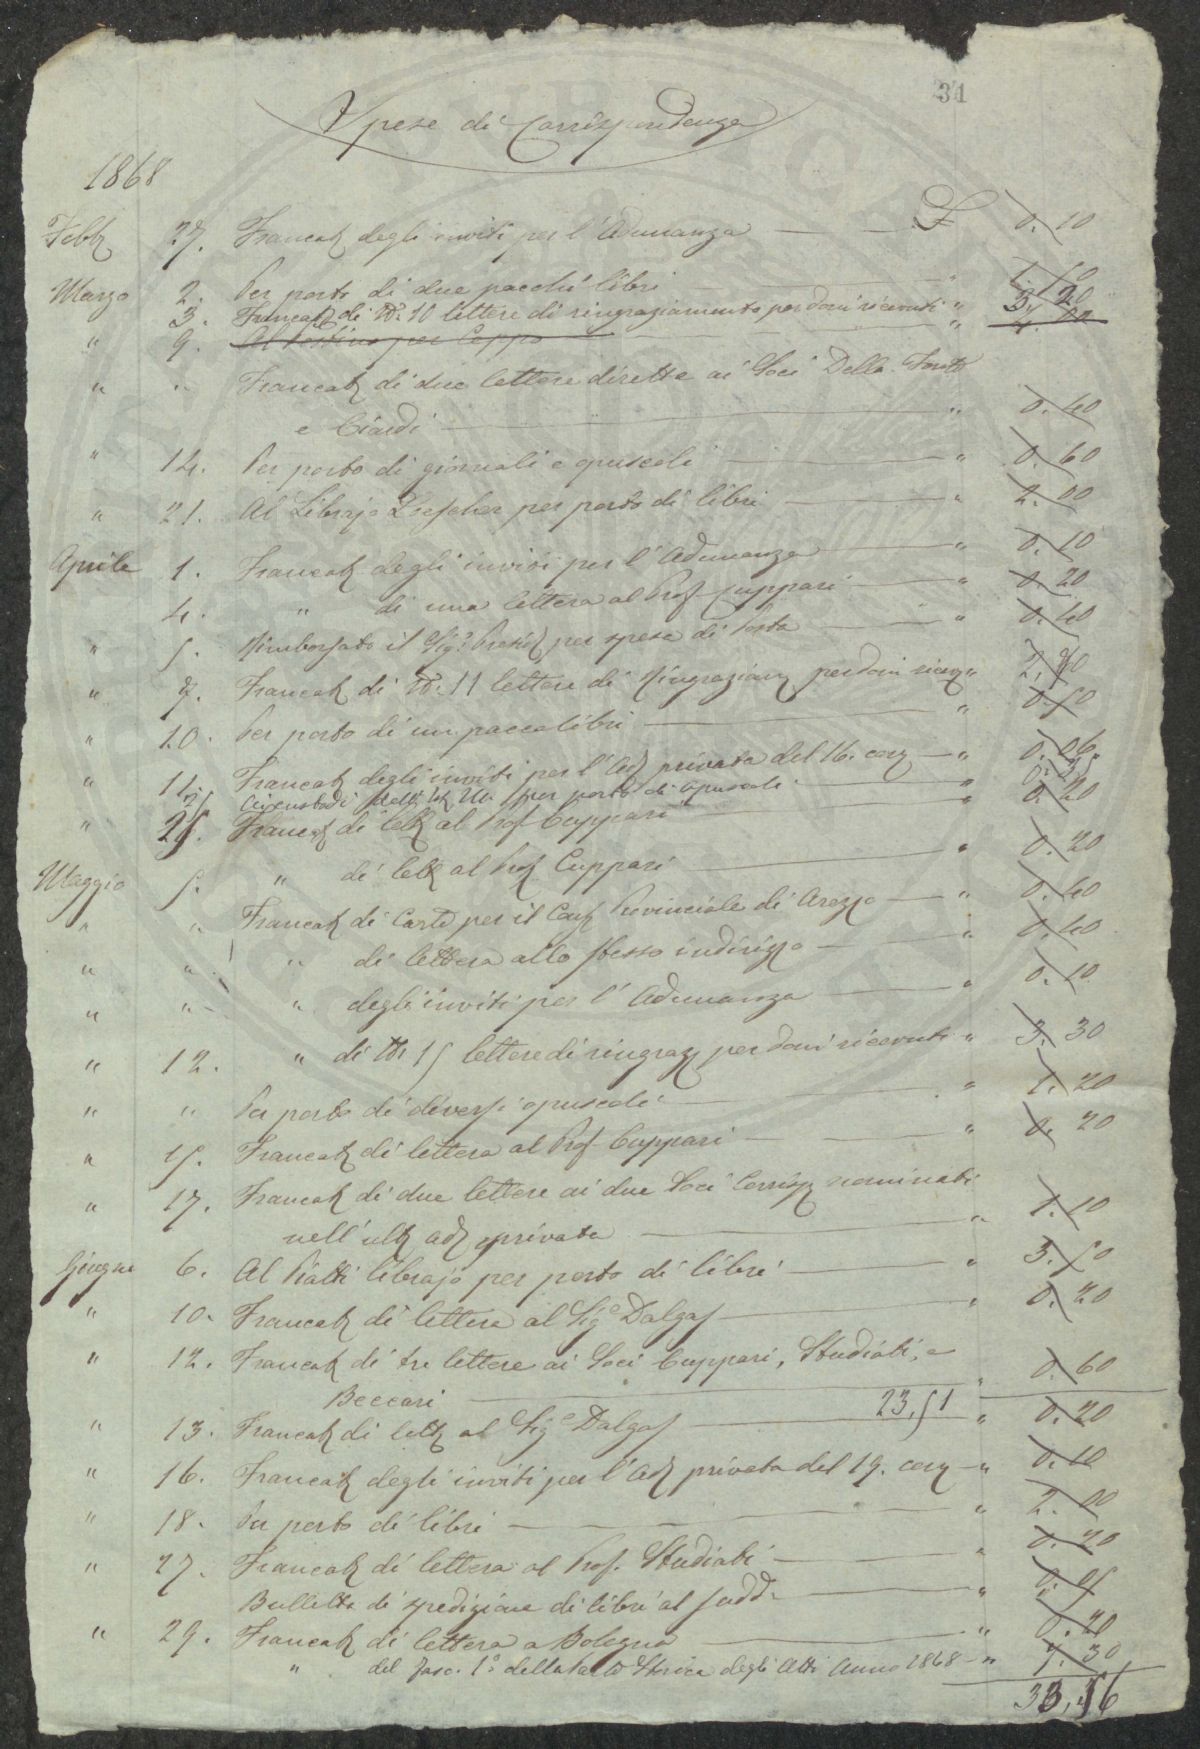 31
Spese di Corrispondenza
1868
Febb 27. Francat degli inviti per l'Adunanza £ 0. 10
Marzo 2. Per porto di due pacchi libri "
3. Francat di N. 10 lettere di ringraziamento per doni ricevuti " 3. 20
" 9. Al Postino per Ceppo "
" " Francat di due lettere dirette ai Soci Della
e Ciardi " 0. 40
" 14. Per porto di giornali e opuscoli " 0. 60
" 21. Al Librajo Loescher per porto di libri " 2. 00
Aprile 1. Francat degli inviti per l'Adunanza " 0. 10
4. " di una lettera al Prof Cuppari " 0. 20
" 5. Rimborsato il Sig. Presid per spese di Posta " 0. 40
" 7. Francat di N. 11 lettere di Ringraziam per doni ricev "
" 10. Per porto di un pacco libri " 0. 50
" Francat degli inviti per l'Ad privata del 16. corr " 0. 06
per porto di opuscoli "
" 25. Francat di lett al Prof Cuppari " 0. 20
Maggio 5. " di lett al Prof Cuppari " 0. 20
" " Francat di Carte per il Provinciale di Arezzo " 0. 40
" " " di lettera allo stesso indirizzo " 0. 40
" " " degli inviti per l'Adunanza " 0. 10
" 12. " di N. 15 lettere di ringraz per doni ricevuti " 3. 30
" " Per porto di diversi opuscoli " 1. 20
" 15. Francat di lettera al Prof Cuppari " 0. 20
" 17. Francat di due lettere ai due Soci Corrisp nominati
nell'ult ad privata " 1. 10
Giugno 6. Al Piatti librajo per porto di libri " 3. 50
" 10. Francat di lettera al Sig Dalgas " 0. 20
" 12. Francat di tre lettere ai Soci Cuppari, Studiati, e
Beccari " 0. 60
23,51
" 13. Francat di lett al Sig Dalgas " 0. 20
" 16. Francat degli inviti per l'Ad privata del 19. corr " 0. 10
" 18. Per porto di libri " 2. 00
" 27. Francat di lettera al Prof. Studiati " 0. 20
Bulletta di spedizione di libri al sudd " 0. 05
" 29. Francat di lettera a Bologna " 0. 20
" del fasc. 1° della Parte Storica degli Atti Anno 1868 " 7. 30